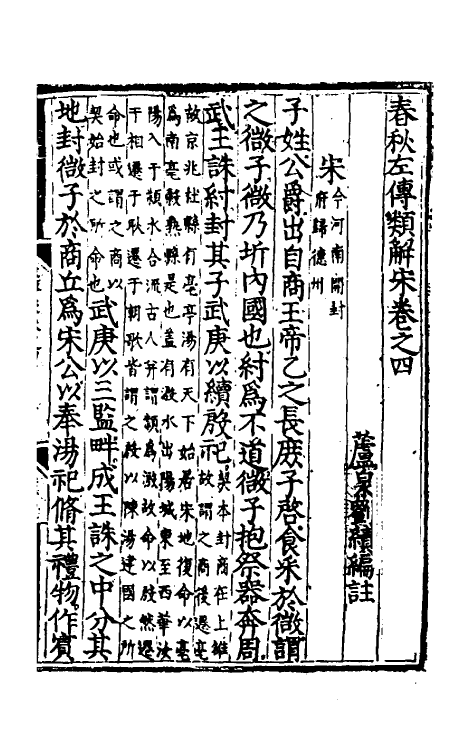 春秋左傳類解宋卷之四
蘆泉劉績編註
宋
今河南開封
府歸德州
子姓公爵出自商王帝乙之長庶子啓食采於微謂
之微子微乃圻內國也紂爲不道微子抱祭器奔周
武王誅紂封其子武庚以續殷祀
契本封商在上雒
故謂之商後遷亳
故京兆杜縣有亳亭湯有天下始居宋地復命以亳
爲南亳穀熟縣是也盖有溵水出陽城東至西華汝
陽入于潁水合流古人並謂潁爲溵故命以殷然遷
于相遷于耿遷于朝歌皆謂之殷以陳湯建國之所
命也或謂之商以
契始封之所命也
武庚以三監畔成王誅之中分其
地封微子於商丘爲宋公以奉湯祀脩其禮物作賓